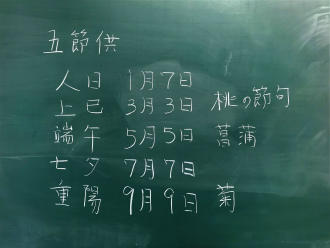 五節供
人日 1月7日
上巳 3月3日 桃の節句
端午 5月5日 菖蒲
七夕 7月7日
重陽 9月9日 菊